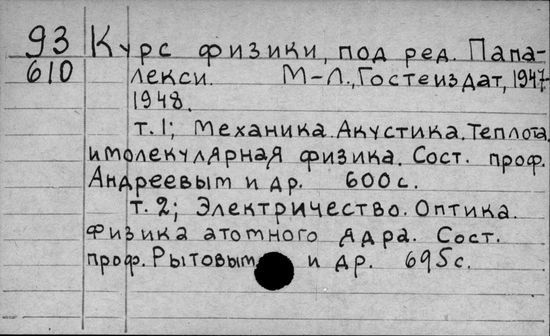 93 Курс физики, под ред. Папа-
610 лекси. М-Л., Гостеиздат, 1947
1948.
т.1; Механика. Акустика. Теплота
и молекулярная физика. Сост. проф.
Андреевым и др. 600 с.
т.2; Электричество. Оптика.
Физика атомного ядра. Сост.
проф. Рытовым и др. 695 с.